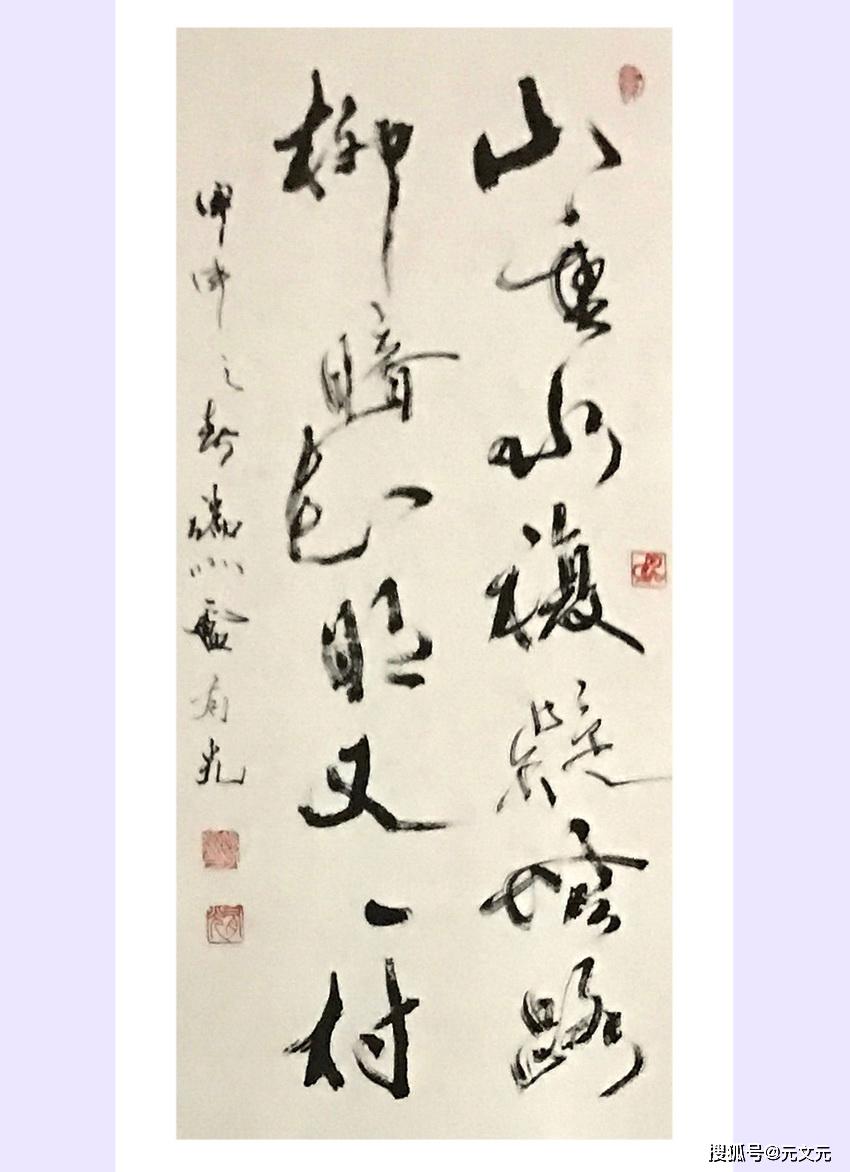 山重水複疑無路
柳暗花明又一村
甲申之春盧有光
搜狐号@元文元